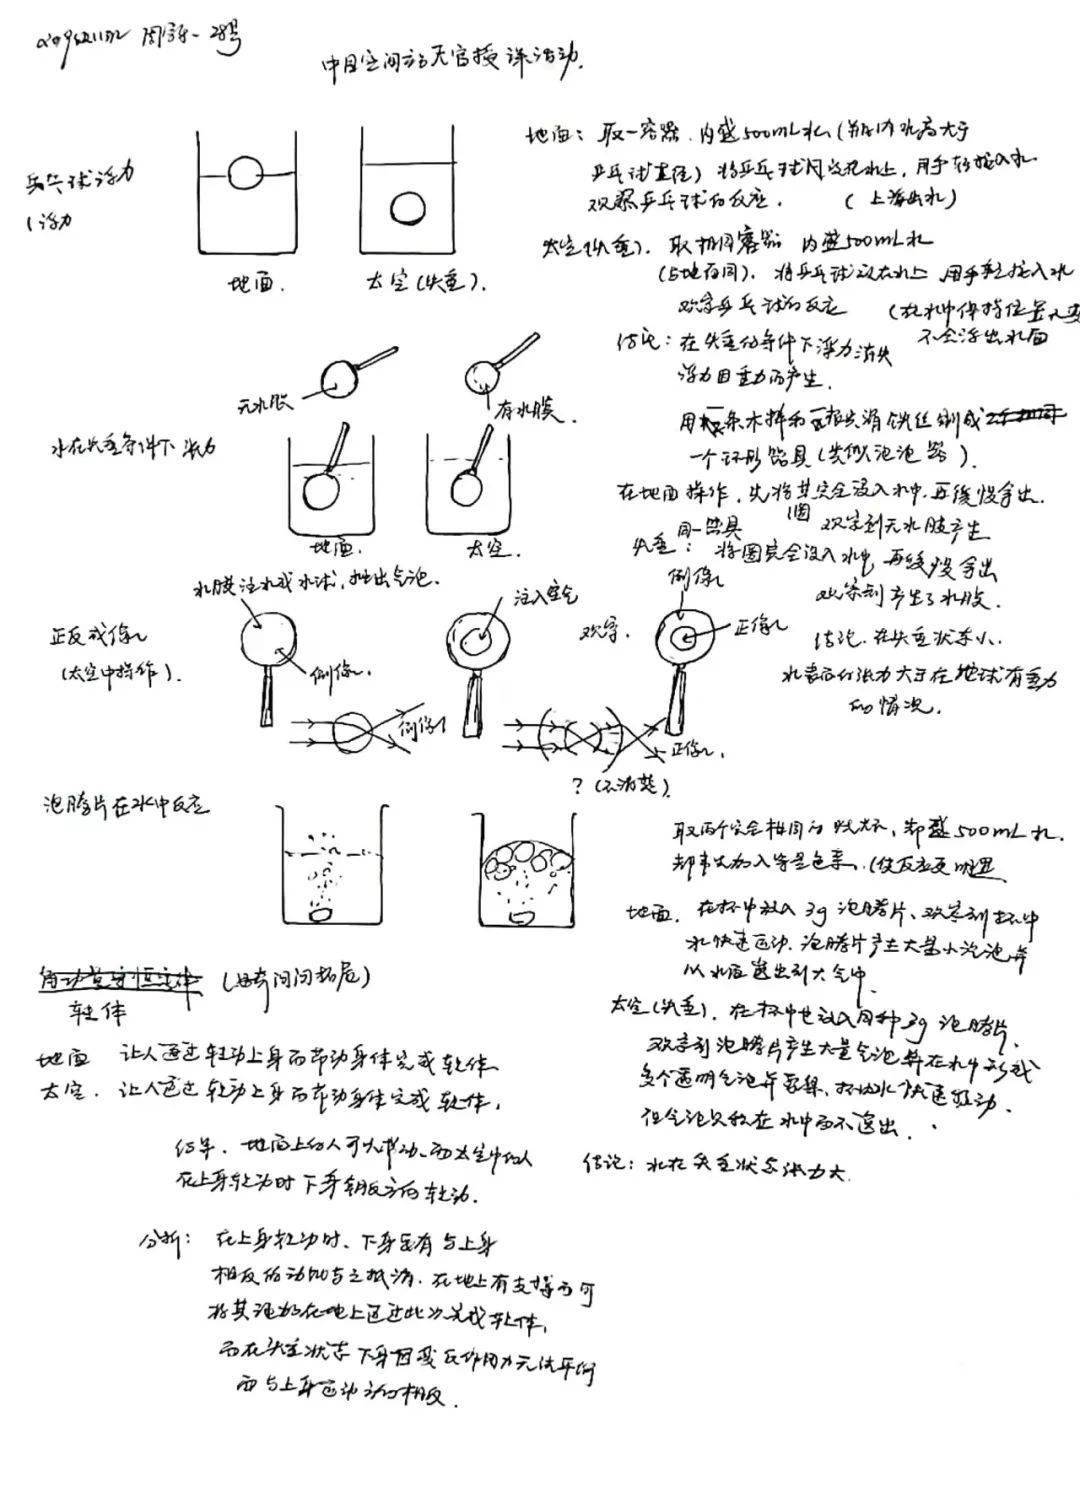 中国空间站天宫授课活动.
乒乓球浮力
(浮力
地面.
太空(失重).
地面: 取一容器.内盛500mL水,(并且内水高大于
乒乓球直径) 将乒乓球 水上,用手轻按入水
观察乒乓球的反应. (上浮出水)
太空(失重). 取相同容器 内盛500mL水
(与地面同). 将乒乓球放在水上 用手轻按入水
观察乒乓球的反应 (在水中保持位置不变
不会浮出水面
结论: 在失重的条件下浮力消失
浮力因重力而产生.
水在失重条件下张力
无水膜
有水膜.
地面.
太空.
用 木棒和 铁丝制成
一个环形器具(类似泡泡器).
在地面操作,先将其完全没入水中,再缓慢拿出.
观察到无水膜产生
失重: 同一器具 将圈完全没入水中,再缓慢拿出
观察到产生了水膜.
结论.在失重状态下.
水表面的张力大于在地球有重力
的情况.
正反成像
(太空中操作).
水膜注水成水球,抽出气泡.
倒像.
注入空气
观察.
倒像
正像
倒像
正像.
?(不清楚)
泡腾片在水中反应
取两个完全相同的 杯,都盛500mL水.
都 加入等量色素,(使反应更明显
地面. 在杯中放入3g泡腾片,观察到杯中
水快速运动.泡腾片产生大量小泡泡并
从水面逸出到大气中.
太空(失重).在杯中也放入同种3g泡腾片.
观察到泡腾片产生大量气泡并在水中形成
多个透明气泡并聚集, 水快速 动.
但气泡只放在水中而不逸出.
结论: 水在失重状态张力大.
角动量守恒定律 (课间问拓展)
转体
地面 让人通过转动上身而带动身体完成转体.
太空. 让人通过转动上身而带动身体完成转体.
结果. 地面上的人可以成功,而太空中的人
在上身转动时下身朝反方向转动.
分析: 在上身转动时,下身会有与上身
相反的动能与之抵消.在地上有支撑而可
将其 在地上 以完成转体,
而在失重状态下身因 反作用力无法平衡
而与上身运动方向相反.